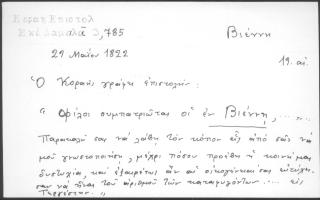 Κοραῆ Ἐπιστολ
Ἐκδ. Δαμαλᾶ 3,785
Βιέννη
29 Μαΐου 1822
19. αἰ.
Ὁ Κοραῆς γράφει ἐπιστολήν:
"Φίλοι συμπατριῶται οἱ ἐν Βιέννῃ, ....
Παρακαλῶ σας νὰ λάβῃ τὸν κόπον εἷς ἀπὸ σᾶς νὰ
μοῦ γνωστοποιήσῃ, μέχρι πόσου προέβη ἡ κοινή μας
δυστυχία, καὶ ἐξαιρέτως ἂν αἱ οἰκογένειαί σας
σαν νὰ ἦναι τοῦ ἀριθμοῦ τῶν καταφυγόντων .... εἰς
Τεργέστην"